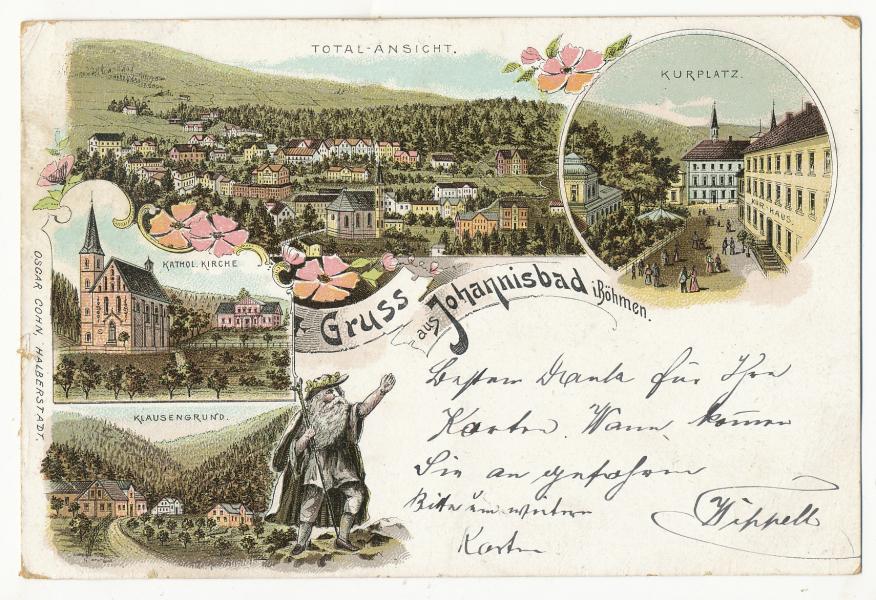 TOTAL-ANSICHT.
KURPLATZ.
KUR HAUS.
KATHOL. KIRCHE
Gruss
aus Johannisbad i. Böhmen.
KLAUSENGRUND.
OSCAR COHN, HALBERSTADT.
Besten Dank für Ihre
Karten. Wann kommen
Sie an gefahren
Bitte um weitere
Karten